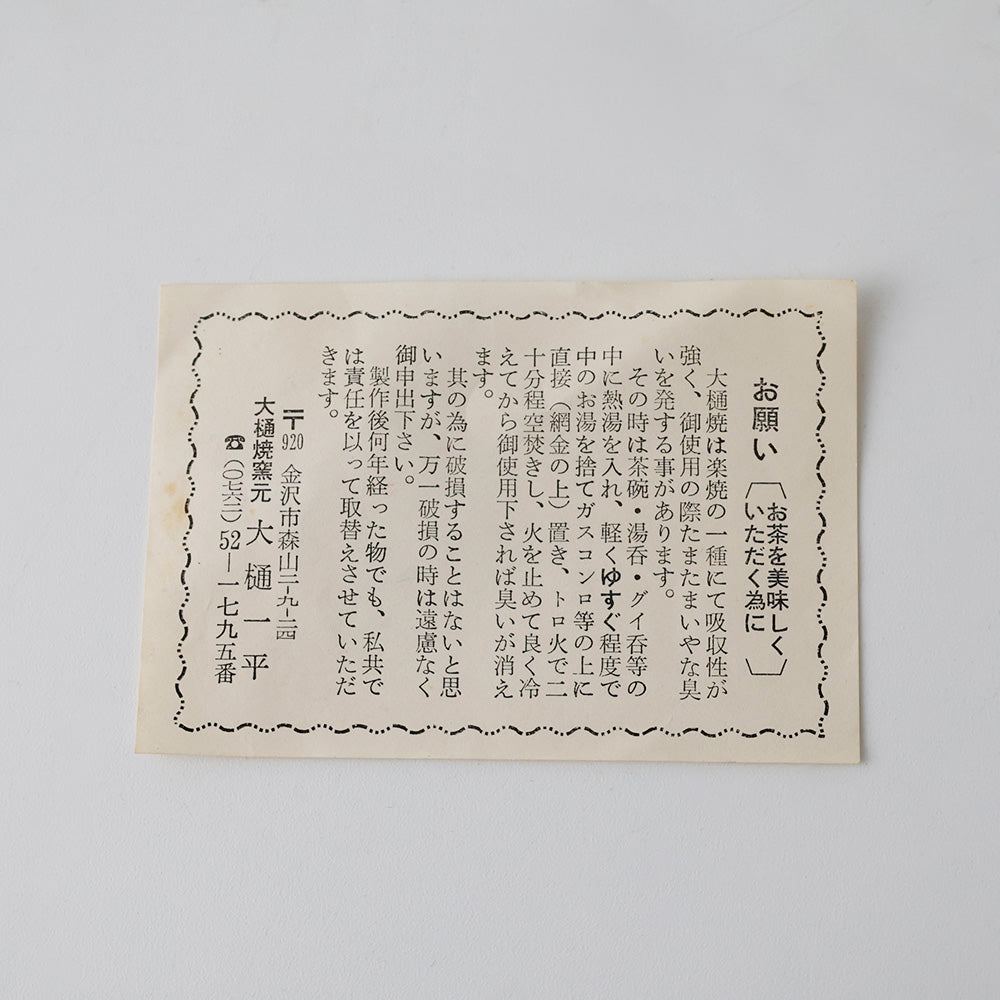 お願い
お茶を美味しく
いただく為に
大樋焼は楽焼の一種にて吸収性が
強く、御使用の際たまたまいやな臭
いを発する事があります。
その時は茶碗・湯呑・グイ呑等の
中に熱湯を入れ、軽くゆすぐ程度で
中のお湯を捨てガスコンロ等の上に
直接(網金の上)置き、トロ火で二
十分程空焚きし、火を止めて良く冷
えてから御使用下されば臭いが消え
ます。
其の為に破損することはないと思
いますが、万一破損の時は遠慮なく
御申出下さい。
製作後何年経った物でも、私共で
は責任を以って取替えさせていただ
きます。
〒920 金沢市森山二-九-二四
大樋焼窯元 大樋一平
☎(〇七六二)52-一七九五番